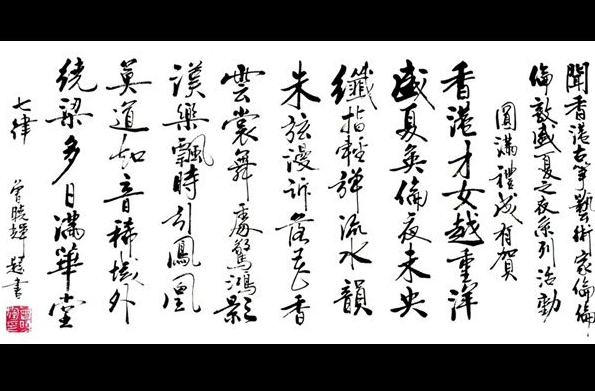 聞香港古箏藝術家倫倫
倫敦盛夏之夜系列活動
圓滿禮成有賀
香港才女越重洋
盛夏英倫夜未央
纖指輕弹流水韻
朱弦漫訴落花香
雲裳舞處驚鴻影
漢樂飄時引鳳凰
莫道知音稀域外
绕梁多日滿華堂
七律
曾晓輝 題書